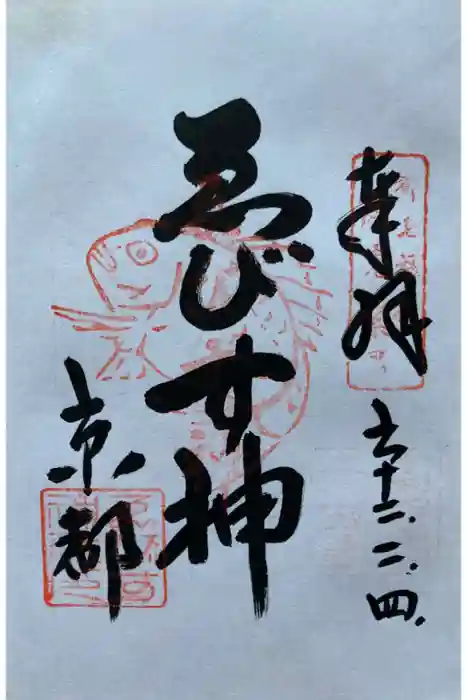 奉拝
六十二.二.四.
ゑびす神
京都